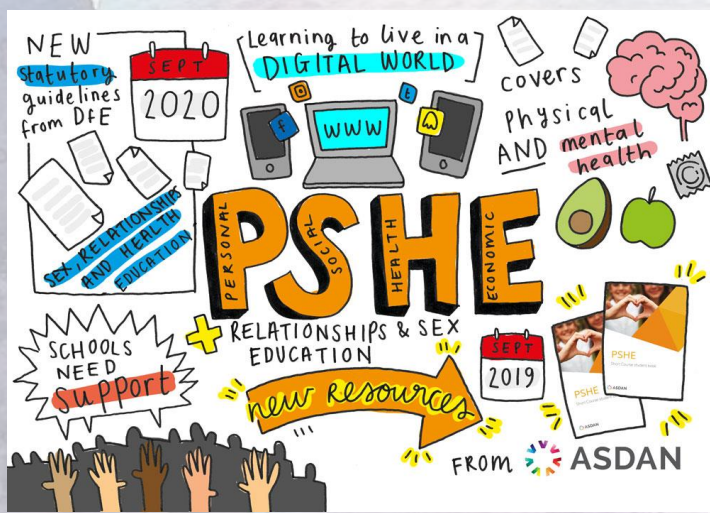 NEW
statutory
guidelines
from DfE
SEPT
2020
SEX, RELATIONSHIPS
AND HEALTH
EDUCATION
Learning to live in a
DIGITAL WORLD
f
t
WWW
covers
physical
AND mental
health
PSHE
PERSONAL
SOCIAL
HEALTH
ECONOMIC
+ RELATIONSHIPS & SEX
EDUCATION
SCHOOLS
NEED
support
new resources
SEPT
2019
PSHE
ASDAN
PSHE
ASDAN
FROM ASDAN